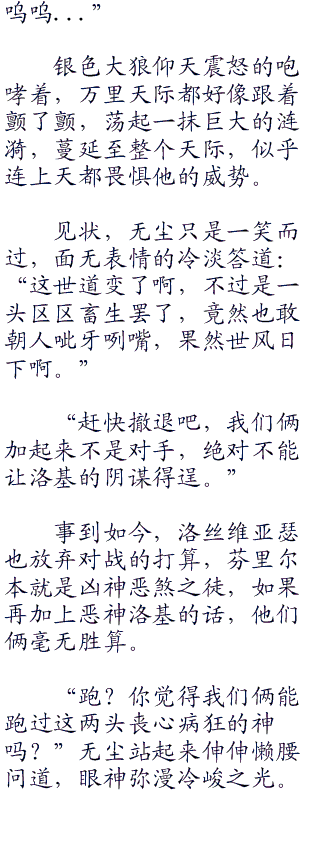 呜呜...”
银色大狼仰天震怒的咆
哮着，万里天际都好像跟着
颤了颤，荡起一抹巨大的涟
漪，蔓延至整个天际，似乎
连上天都畏惧他的威势。
见状，无尘只是一笑而
过，面无表情的冷淡答道：
“这世道变了啊，不过是一
头区区畜生罢了，竟然也敢
朝人呲牙咧嘴，果然世风日
下啊。”
“赶快撤退吧，我们俩
加起来不是对手，绝对不能
让洛基的阴谋得逞。”
事到如今，洛丝维亚瑟
也放弃对战的打算，芬里尔
本就是凶神恶煞之徒，如果
再加上恶神洛基的话，他们
俩毫无胜算。
“跑？你觉得我们俩能
跑过这两头丧心病狂的神
吗？”无尘站起来伸伸懒腰
问道，眼神弥漫冷峻之光。